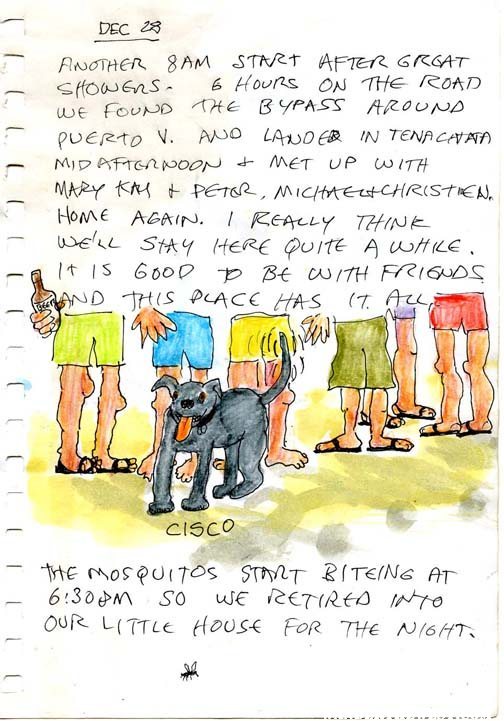 DEC 28
ANOTHER 8AM START AFTER GREAT
SHOWERS. 6 HOURS ON THE ROAD
WE FOUND THE BYPASS AROUND
PUERTO V. AND LANDED IN TENACATATA
MIDAFTERNOON + MET UP WITH
MARY KAY + PETER, MICHAEL+CHRISTIEN.
HOME AGAIN. I REALLY THINK
WE'LL STAY HERE QUITE A WHILE.
IT IS GOOD TO BE WITH FRIENDS
AND THIS PLACE HAS IT ALL
BEER
CISCO
THE MOSQUITOS START BITEING AT
6:30PM SO WE RETIRED INTO
OUR LITTLE HOUSE FOR THE NIGHT.